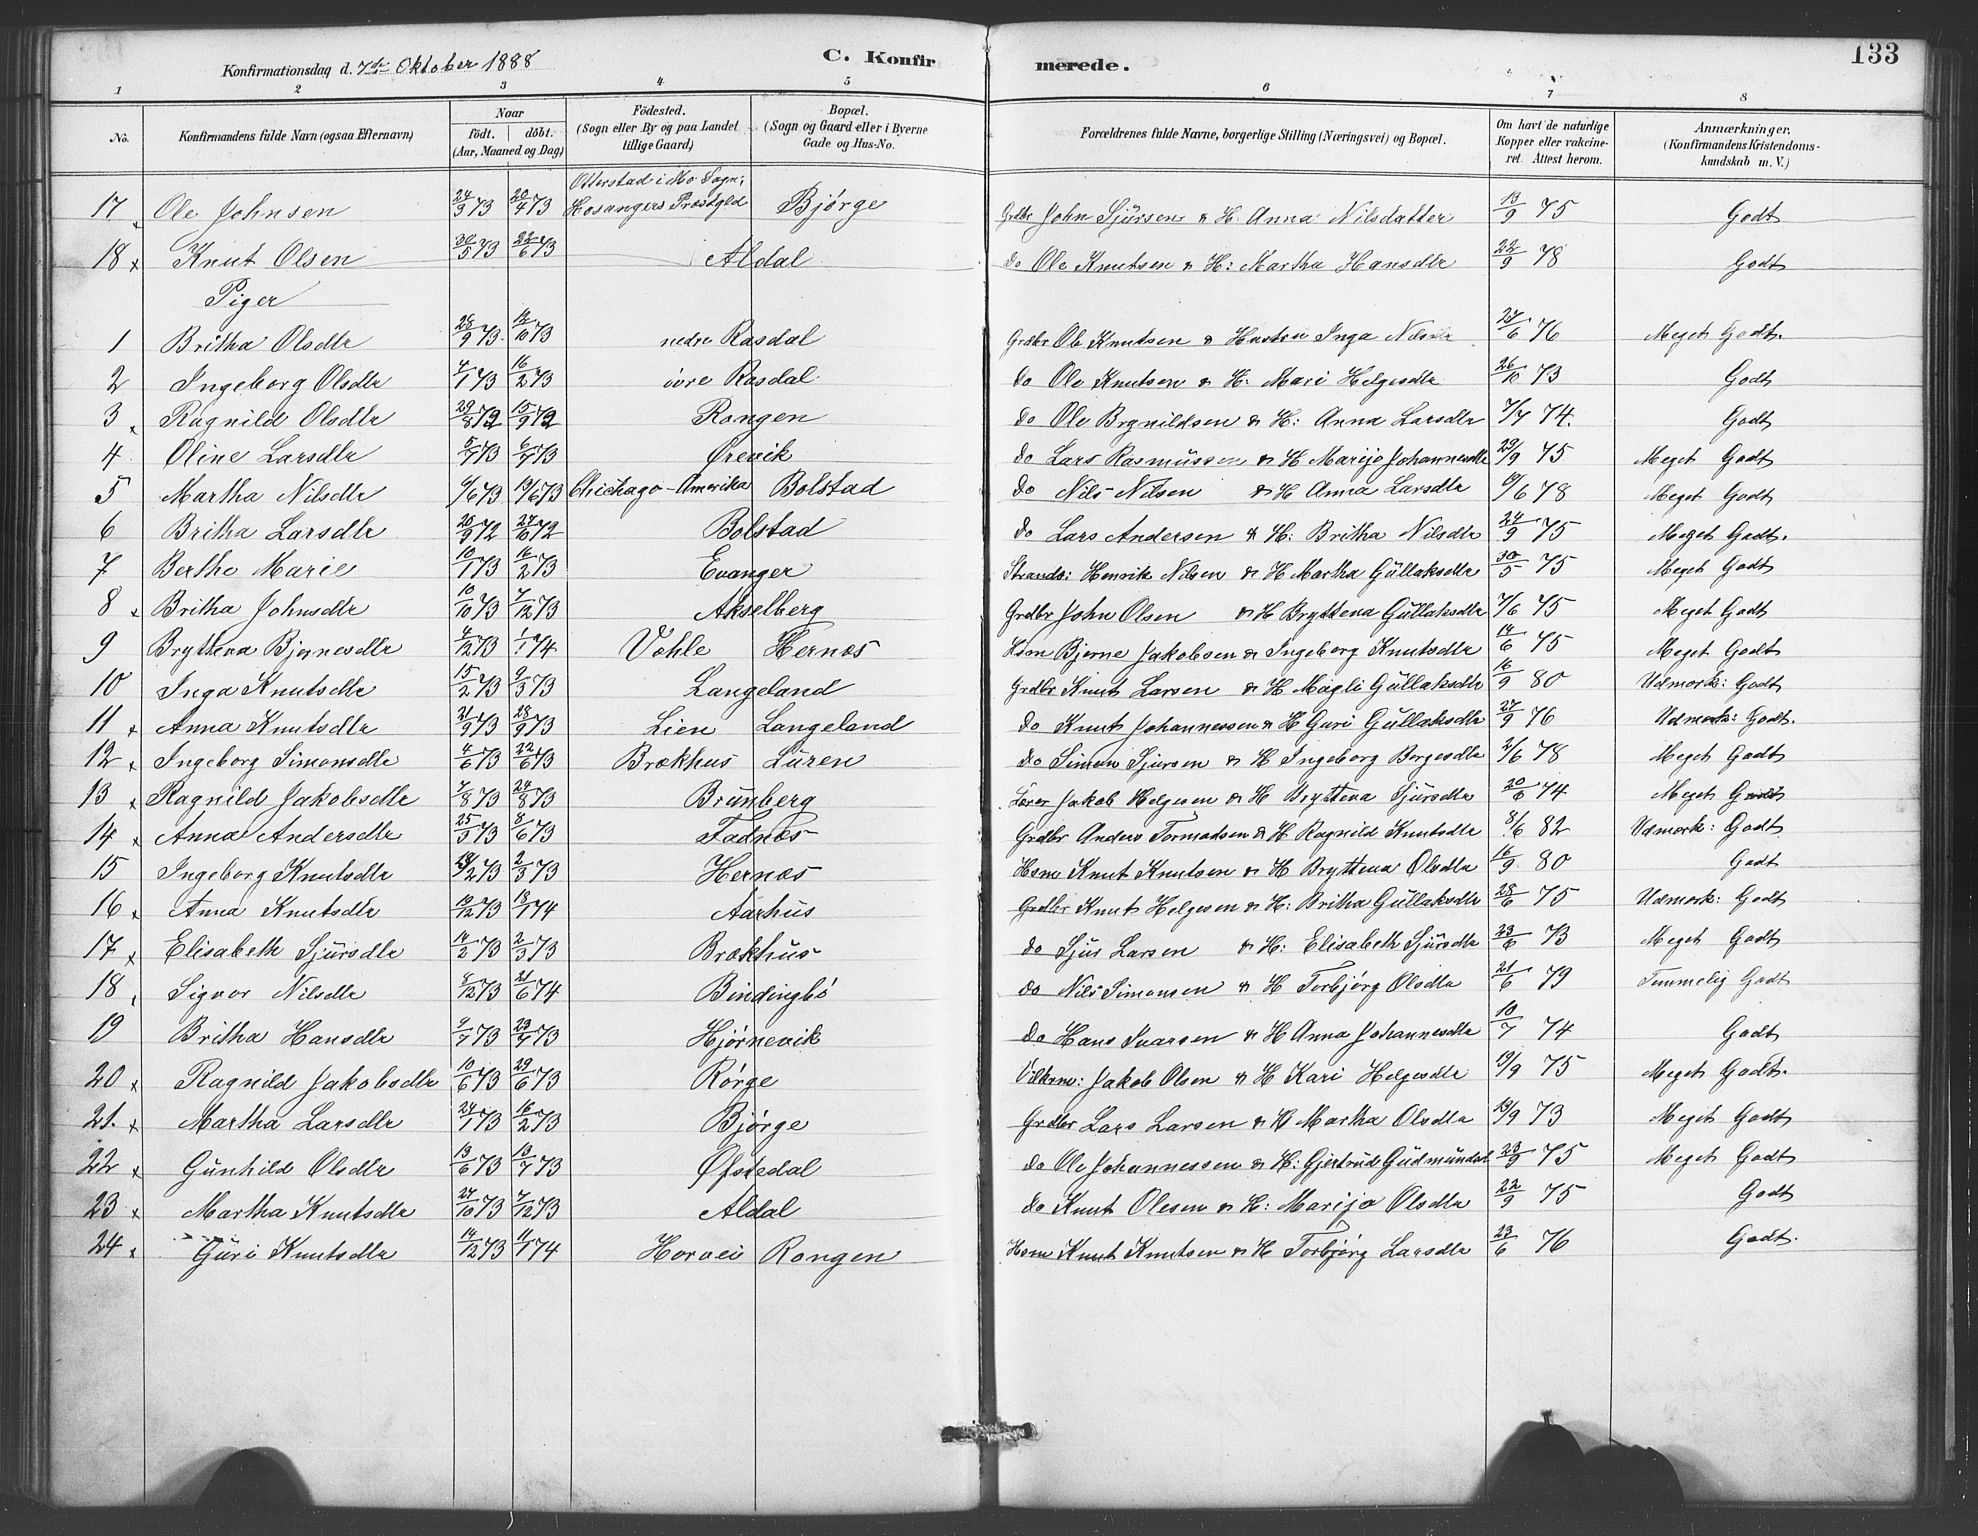 133
Konfirmationsdag d. 7de Oktober 1888 C. Konfirmerede.
1 2 3 4 5 6 7 8
No. Konfirmandens fulde Navn (ogsaa Efternavn) Naar födt. döbt. (Aar, Maaned og Dag) Födested. (Sogn eller By og paa Landet tillige Gaard) Bopæl. (Sogn og Gaard eller i Byerne Gade og Hus-No. Forældrenes fulde Navne, borgerlige Stilling (Næringsvei) og Bopæl. Om havt de naturlige Kopper eller vakcineret. Attest herom. Anmærkninger, (Konfirmandens Kristendomskundskab m. V.)
17 Ole Johnsen 24/3 73 20/4 73 Otterstad i Mo Sogn, Hosangers Præstgld Bjørge Grdbr John Sjursen & H. Anna Nilsdatter 13/9 75 Godt
18 x Knut Olsen 30/5 73 22/6 73 Aldal do Ole Knutsen & H: Martha Hansdtr 22/9 78 Godt
Piger
1 Britha Olsdtr 28/9 73 12/10 73 nedre Rasdal Grdbr Ole Knutsen & Hustru Inga Nilsdtr 24/6 76 Meget Godt.
2 Ingeborg Olsdtr 4/1 73 16/2 73 övre Rasdal do Ole Knutsen & H: Mari Helgesdtr 26/10 73 Godt
3 Ragnild Olsdtr 29/8 72 15/9 72 Rongen do Ole Brynildsen & H: Anna Larsdtr 7/7 74. Godt
4 Oline Larsdtr 5/7 73 6/7 73 Ørevik do Lars Rasmussen & H Marijo Johannesdtr 29/9 75 Meget Godt
5 Martha Nilsdtr 9/6 73 19/6 73 Chichago-Amerika Bolstad do Nils Nilsen & H Anna Larsdtr 19/6 78 Meget Godt
6 Britha Larsdtr 20/9 72 27/10 72 Bolstad do Lars Andersen & H: Britha Nilsdtr 24/9 75 Meget Godt.
7 Berthe Marie 10/1 73 16/2 73 Evanger Strands: Henrik Nilsen & H Martha Gullaksdtr 30/5 75 Meget Godt
8 x Britha Johnsdtr 10/10 73 7/12 73 Akselberg Grdbr John Olsen & H Bryttena Gullaksdtr 7/6 75 Meget Godt
9 Bryttena Bjørnesdtr 4/12 73 1/1 74 Vohle Hernæs Hsm Bjerne Jakobsen & Ingeborg Knutsdtr 14/6 75 Meget Godt
10 Inga Knutsdtr 15/2 73 9/3 73 Langeland Grdbr Knut Larsen & H Magli Gullaksdtr 16/9 80 Udmærk: Godt
11 x Anna Knutsdtr 21/9 73 28/9 73 Lien Langeland do Knut Johannessen & H Guri Gullaksdtr 27/9 76 Udmærk: Godt.
12 x Ingeborg Simonsdtr 4/6 73 22/6 73 Brækhus Luren do Simon Sjursen & H Ingeborg Borgesdtr 21/6 78 Meget Godt
13 x Ragnild Jakobsdtr 7/8 73 24/8 73 Brunberg Lærer Jakob Helgesen & H Bryttena Sjursdtr 20/6 74 Meget Godt
14 x Anna Andersdtr 25/5 73 8/6 73 Fadnæs Grdbr Anders Tormodsen & H Ragnild Knutsdtr 8/6 82 Udmærk: Godt
15 Ingeborg Knutsdtr 13/2 73 2/3 73 Hernæs Hsm Knut Knutsen & H Bryttena Olsdtr 16/9 80 Godt
16 x Anna Knutsdtr 19/12 73 18/1 74 Aarhus Grdbr Knut Helgesen & H: Britha Gullaksdtr 28/6 75 Udmærk: Godt
17 x Elisabeth Sjursdtr 14/2 73 2/3 73 Brækhus do Sjur Larsen & H: Elisabeth Sjursdtr 23/6 73 Meget Godt
18 Sigvor Nilsdtr 8/12 73 21/6 74 Bindingbö do Nils Simonsen & H Torbjørg Olsdtr 21/6 79 Temmelig Godt
19 Britha Hansdtr 9/7 73 23/7 73 Hjørnevik do Hans Ivarsen & H Anna Johannesdtr 10/7 74 Godt
20 x Ragnild Jakobsdtr 10/6 73 29/6 73 Rørge Jakob Olsen & H Kari Helgesdtr 19/9 75 Meget Godt.
21. x Martha Larsdtr 24/1 73 16/2 73 Bjørge Grdbr Lars Larsen & H Martha Olsdtr 19/9 73 Meget Godt
22 x Gunhild Olsdtr 13/6 73 13/7 73 Øfstedal do Ole Johannessen & H: Gjertrud Gudmundsd 23/9 75 Meget Godt
23 x Martha Knutsdtr 27/10 73 7/12 73 Aldal do Knut Olesen & H: Marijo Olsdtr 22/9 75 Godt
24 x Guri Knutsdtr 14/12 73 11/1 74 Horvei Rongen Hsm Knut Knutsen & H Torbjørg Larsdtr 23/6 76 Godt.